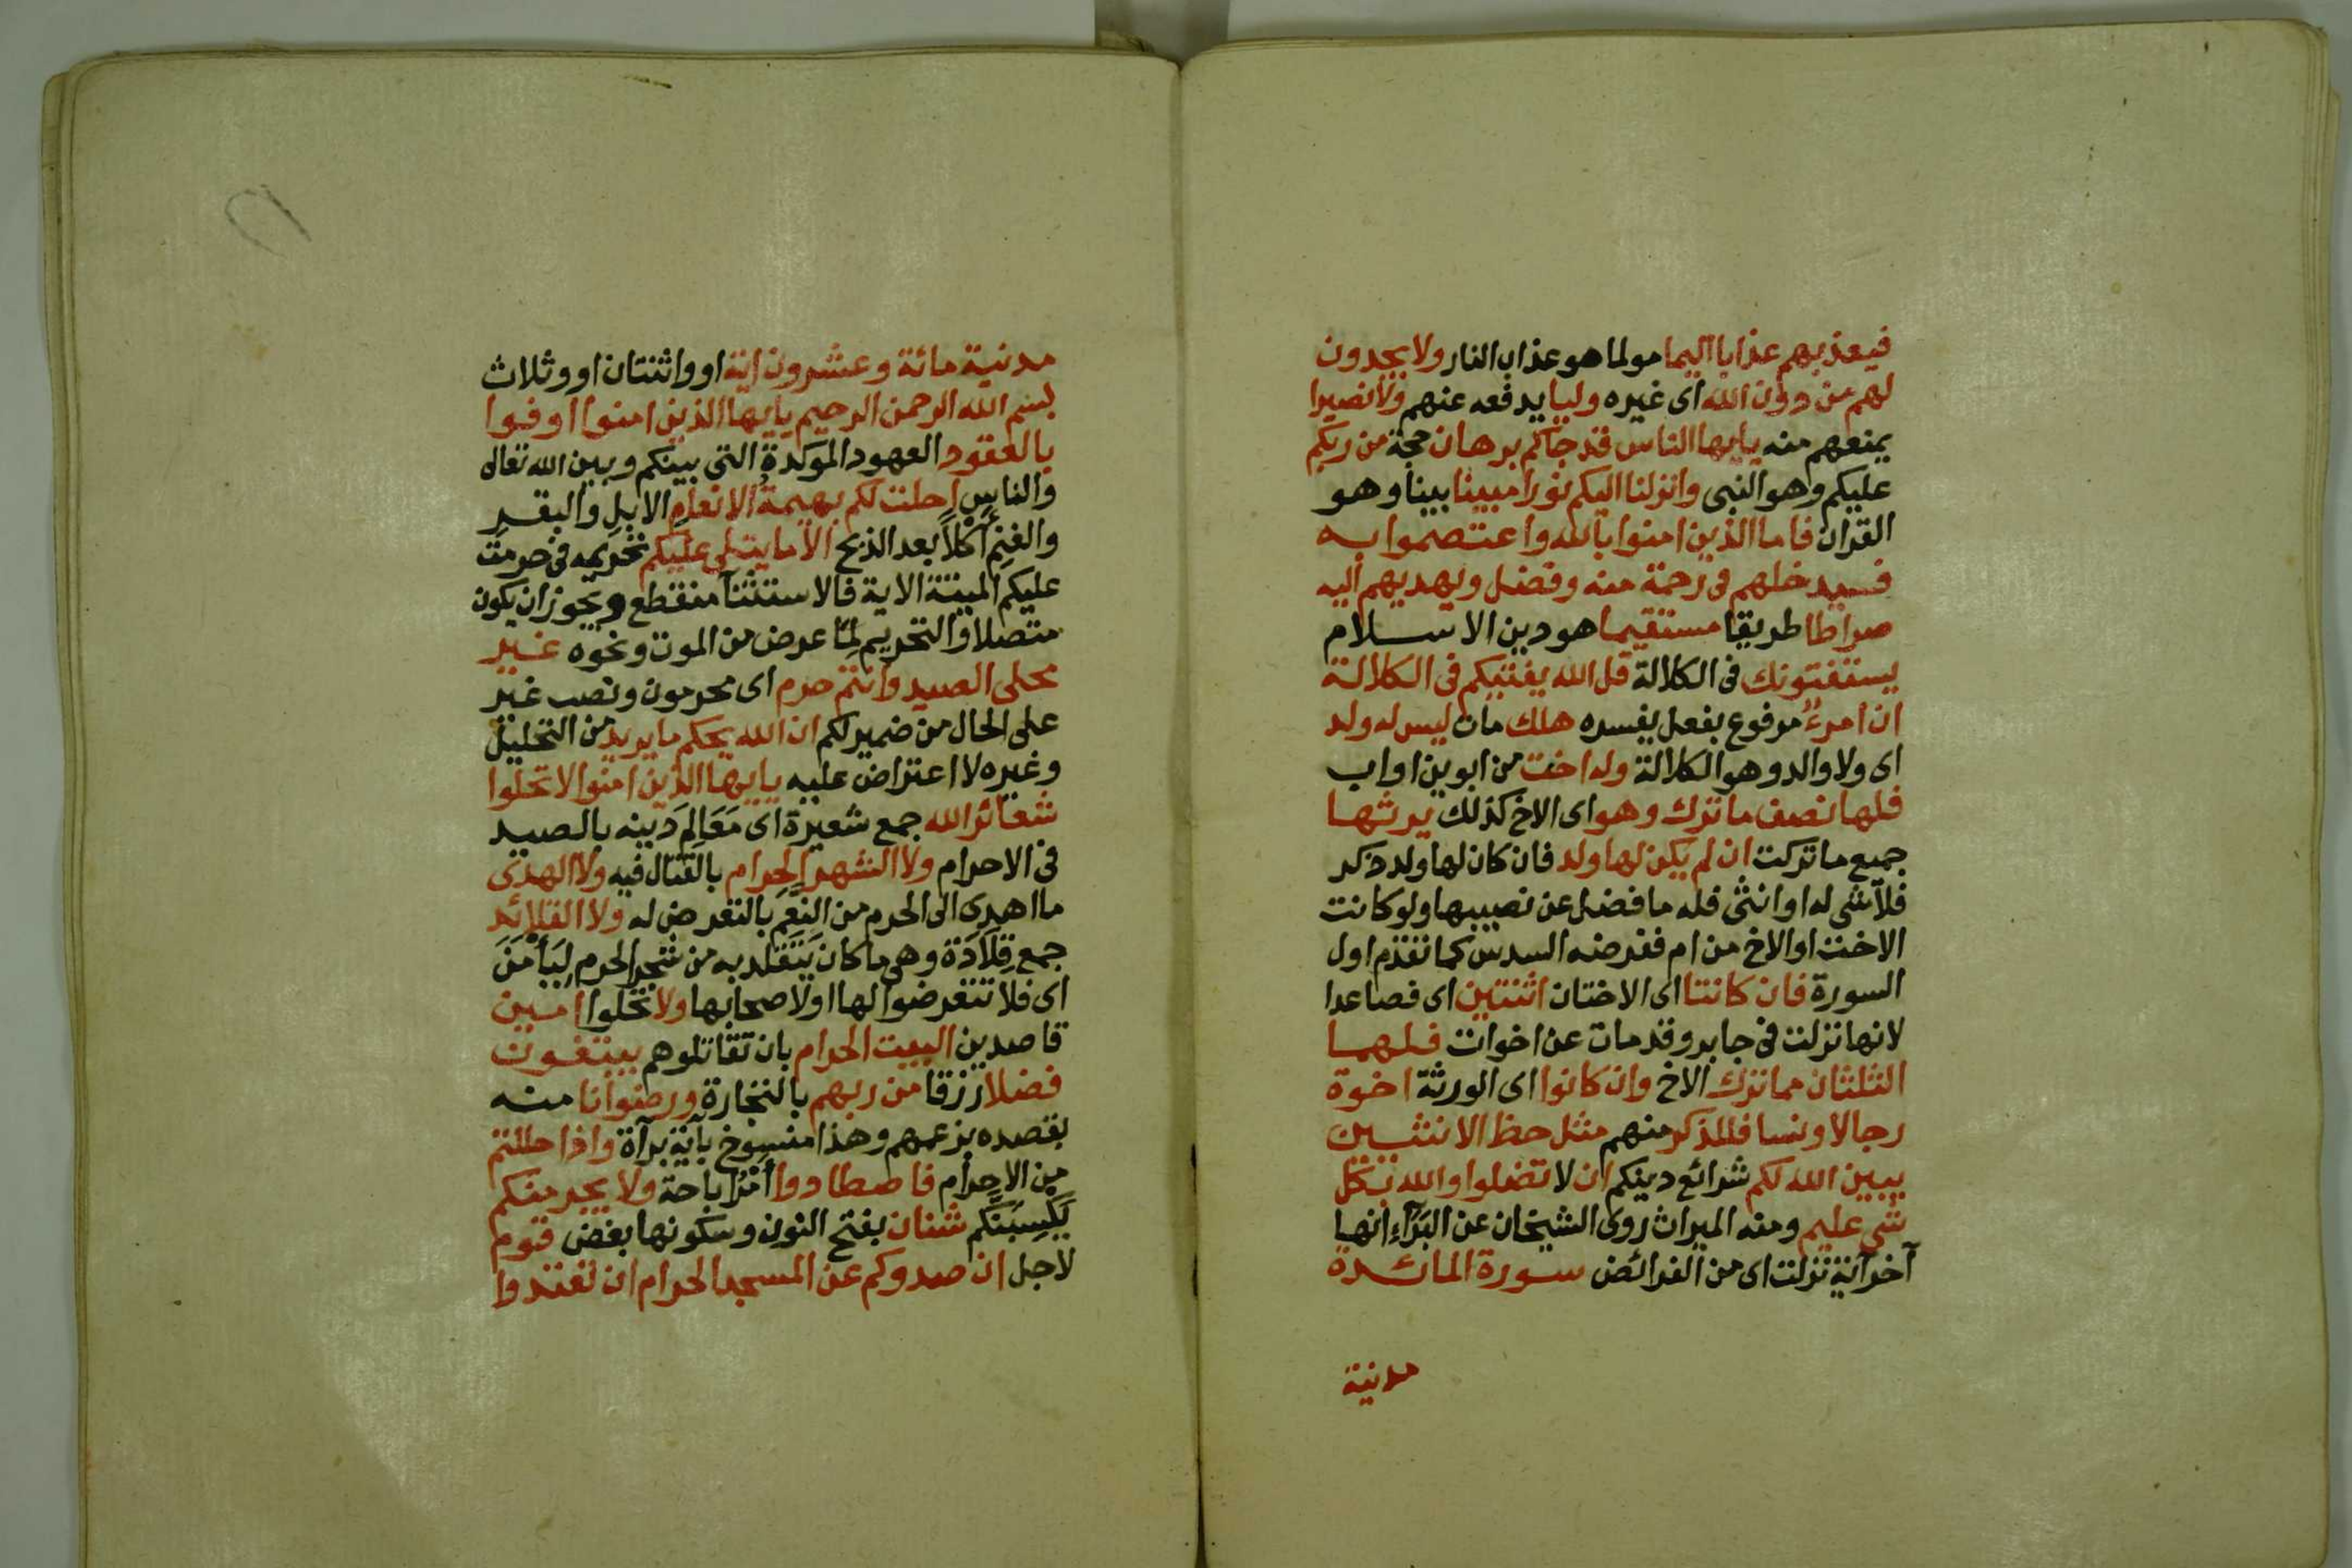 فيعذبهم عذابا اليما مولما هو عذاب النار ولا يجدون
لهم من دون الله اى غيره وليا يدفعه عنهم ولا نصيرا
يمنعهم منه يايها الناس قد جاكم برهان حجة من ربكم
عليكم وهو النبى وانزلنا اليكم نورا مبينا بينا وهو
القران فاما الذين امنوا بالله واعتصموا به
فسيدخلهم فى رحمة منه وفضل ويهديهم اليه
صراطا طريقا مستقيما هو دين الاسلام
يستفتونك فى الكلالة قل الله يفتيكم فى الكلالة
ان امرء مرفوع بفعل يفسره هلك مات ليس له ولد
اى ولا والد وهو الكلالة وله اخت من ابوين او اب
فلها نصف ما ترك وهو اى الاخ كذلك يرثها
جميع ما تركت ان لم يكن لها ولد فان كان لها ولد ذكر
فلا شى له او انثى فله ما فضل عن نصيبها ولو كانت
الاخت او الاخ من ام ففرضه السدس كما تقدم اول
السورة فان كانتا اى الاختان اثنتين اى فصاعدا
لانها نزلت فى جابر وقد مات عن اخوات فلهما
الثلثان مما ترك الاخ وان كانوا اى الورثة اخوة
رجالا ونسا فللذكر منهم مثل حظ الانثيين
يبين الله لكم شرائع دينكم ان لا تضلوا والله بكل
شى عليم ومنه الميراث روى الشيخان عن البَرَّاءِ انها
آخر آية نزلت اى من الفرائض سورة المائدة
مدنية
مدنية مائة وعشرون اية او واثنتان او وثلاث
بسم الله الرحمن الرحيم يايها الذين امنوا اوفوا
بالعقود العهود الموكدة التى بينكم وبين الله تعالى
والناس احلت لكم بهيمة الانعام الابل والبقر
والغنم أكلاً بعد الذبح الا ما يتلى عليكم تحريمه فى حرمت
عليكم الميتة الاية فالاستثنآ منقطع ويجوز ان يكون
متصلا والتحريم لِمَا عرض من الموت ونحوه غير
محلى الصيد وانتم حرم اى محرمون ونصب غير
على الحال من ضمير لكم ان الله يحكم ما يريد من التحليل
وغيره لا اعتراض عليه يايها الذين امنوا لا تحلوا
شعائر الله جمع شعيرة اى مَعَالِم دينه بالصيد
فى الاحرام ولا الشهر الحرام بالقتال فيه ولا الهدى
ما اهدى الى الحرم من النعم بالتعرض له ولا القلائد
جمع قِلَادَة وهى ما كان يَتَقلد به من شجر الحرم لِيَأمَنَ
اى فلا تتعرضوا لها او لاصحابها ولا تحلوا امين
قاصدين البيت الحرام بان تقاتلوهم يبتغون
فضلا رزقا من ربهم بالتجارة ورضوانا منه
بقصده بزعمهم وهذا منسوخ بآية برآة واذا حللتم
من الاحرام فاصطادوا أمْرُ اباحة ولا يجرمنكم
يَكْسِبَنكم شنان بفتح النون وسكونها بغض قوم
لاجل ان صدوكم عن المسجد الحرام ان تعتدوا